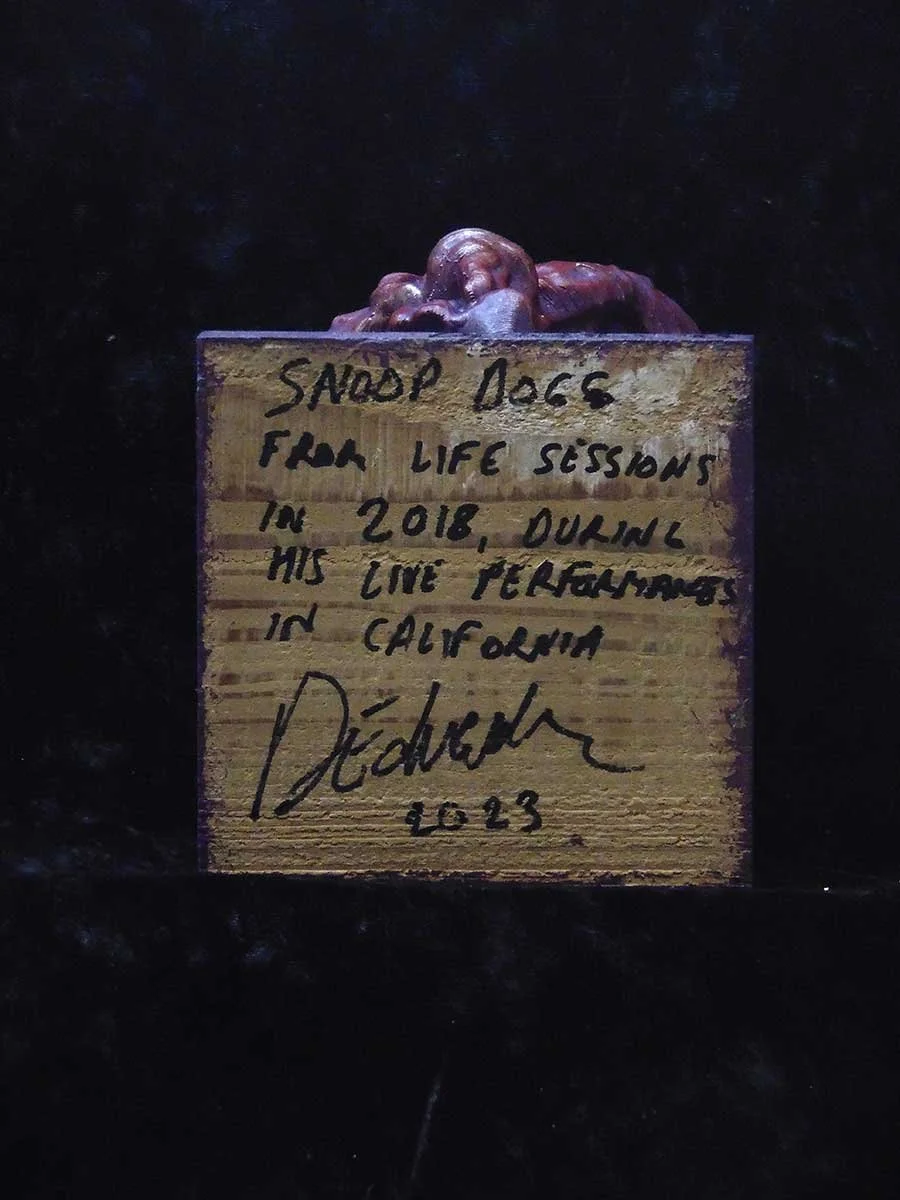 SNOOP DOGG
FROM LIFE SESSIONS
IN 2018, DURING
HIS LIVE PERFORMANCES
IN CALIFORNIA
2023